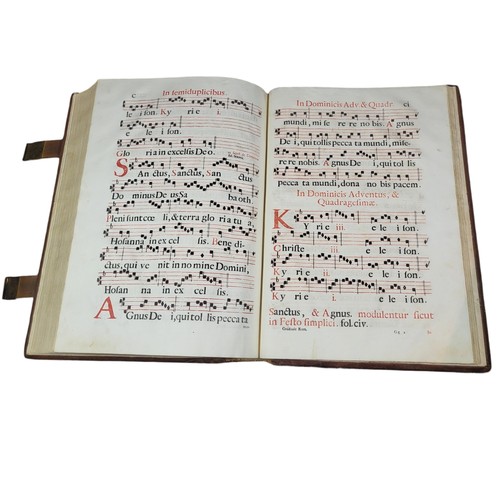 C In semiduplicibus.
le i son. Ky ri e i.
e le i son.
Glo ria in excelsis Deo.
SAn ctus, Sanctus, San ctus
Do minus Deus Sa ba oth
Pleni sunt cœ li, & terra glo ri a tu a,
Hosanna in ex cel sis. Bene di-
ctus, qui ve nit in no mine Domini,
Hosan na in ex cel sis.
AGnus De i, qui tol lis pecca ta
In Dominicis Adv. & Quadr. ci
mundi, mise re re no bis. Agnus
De i, qui tollis pecca ta mundi, mise-
re re nobis. Agnus De i, qui tol lis
pecca ta mundi, dona no bis pacem.
In Dominicis Adventus, &
Quadragesimæ.
KY ri e iii. e le i son.
Christe iii. e le i son.
Ky ri e ii. e le i son.
Ky ri e i. e le i son.
Sanctus, & Agnus modulentur sicut
in Festo simplici. fol. civ.
Graduale Rom.